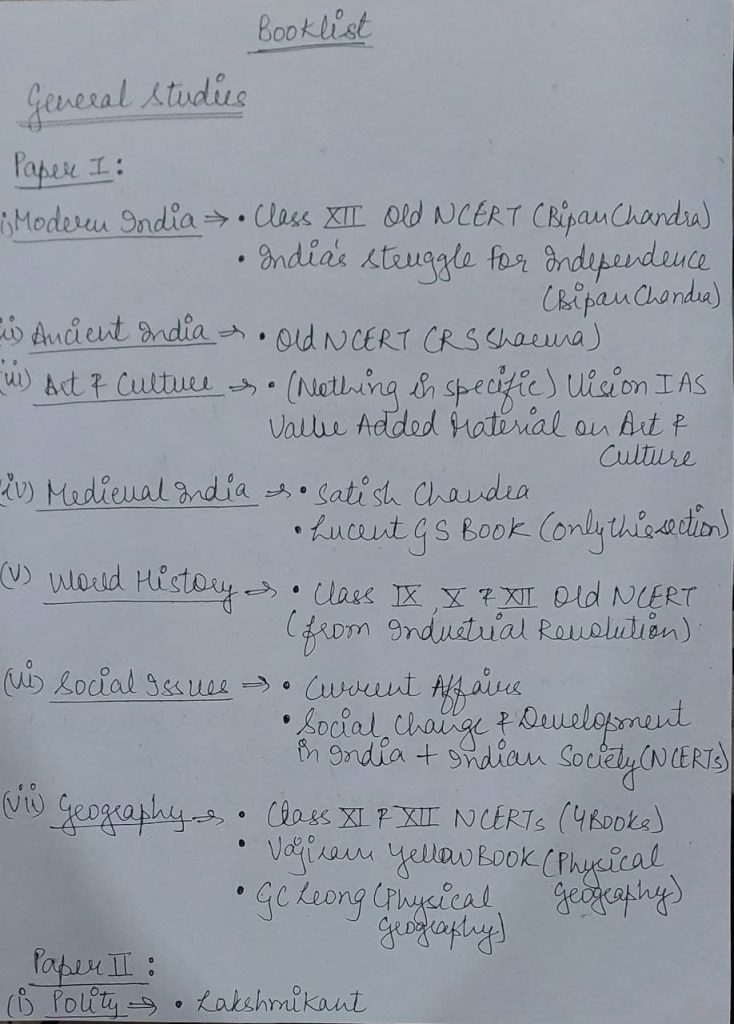 Booklist
General Studies
Paper I :
i) Modern India ⇒ • Class XII Old NCERT (Bipan Chandra)
• India's Struggle for Independence
(Bipan Chandra)
ii) Ancient India → • Old NCERT (RS Sharma)
(iii) Art & Culture → • (Nothing in specific) Vision IAS
Value Added Material on Art &
Culture
(iv) Medieval India → • Satish Chandra
• Lucent GS Book (only this section)
(v) World History → • Class IX, X & XII Old NCERT
(from Industrial Revolution)
(vi) Social Issues ⇒ • Current Affairs
• Social Change & Development
in India + Indian Society (NCERTs)
(vii) Geography → • Class XI & XII NCERTs (4 Books)
• Vajiram Yellow Book (Physical
Geography)
• GC Leong (Physical
Geography)
Paper II :
(i) Polity ⇒ • Lakshmikant